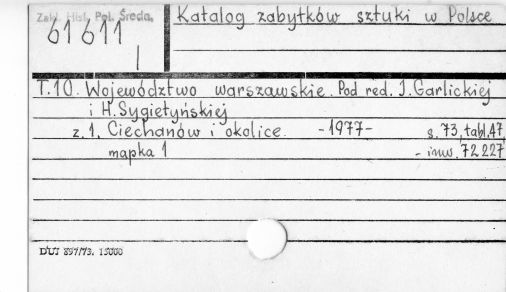 Zakł. Hist. Pol. Średn.
61611
I
Katalog zabytków sztuki w Polsce
T.10. Województwo warszawskie. Pod red. I. Garlickiej
i H. Sygietyńskiej
z.1. Ciechanów i okolice. -1977-
s. 73, tabl. 47,
mapka 1
- inw. 72227
DUJ 897/73. 15000